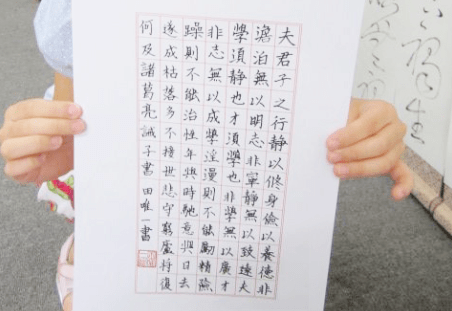 夫君子之行静以修身儉以養德非
澹泊無以明志非寧静無以致遠夫
學須静也才須學也非學無以廣才
非志無以成學淫漫則不能勵精險
躁則不能治性年與時馳意與日去
遂成枯落多不接世悲守窮廬将復
何及諸葛亮誡子書 田唯一書